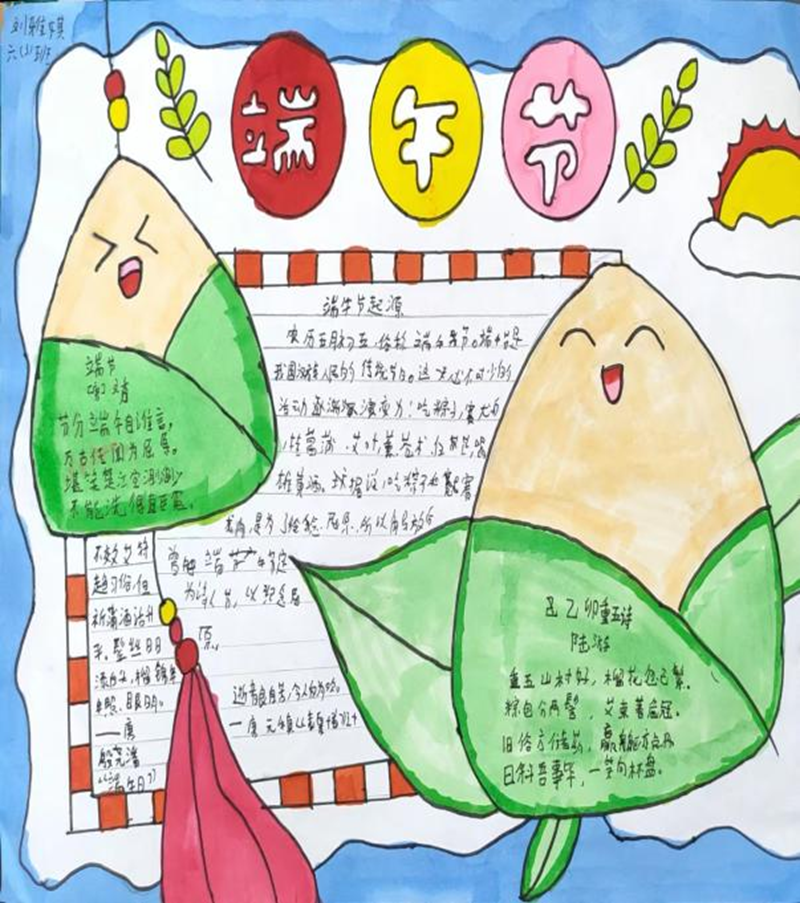 刘雅琪
六(3)班
端午节
端午节起源
农历五月初五,俗称端午节。端午节是
我国汉族人民的传统节日。这一天必不可少的
活动逐渐演变为:吃粽子,赛龙舟
挂菖蒲、艾叶,薰苍术、白芷,喝
雄黄酒。据说,吃粽子和赛
是为了纪念屈原,所以
曾把端午节
为诗人节,以纪念屈
原。
端午
文秀
节分端午自谁言,
万古传闻为屈原。
堪笑楚江空渺渺,
不能洗得直臣冤。
不效艾符
趋习俗,但
祈蒲酒话升
平。鬓丝日日
添白头,榴锦年
年照眼明。
——唐
殷尧藩
《端午日》
——唐 元稹《表夏十首
乙卯重五诗
陆游
重五山村好,榴花忽已繁。
粽包分两髻,艾束著危冠。
旧俗方储药,羸躯亦点丹。
日斜吾事毕,一笑向杯盘。